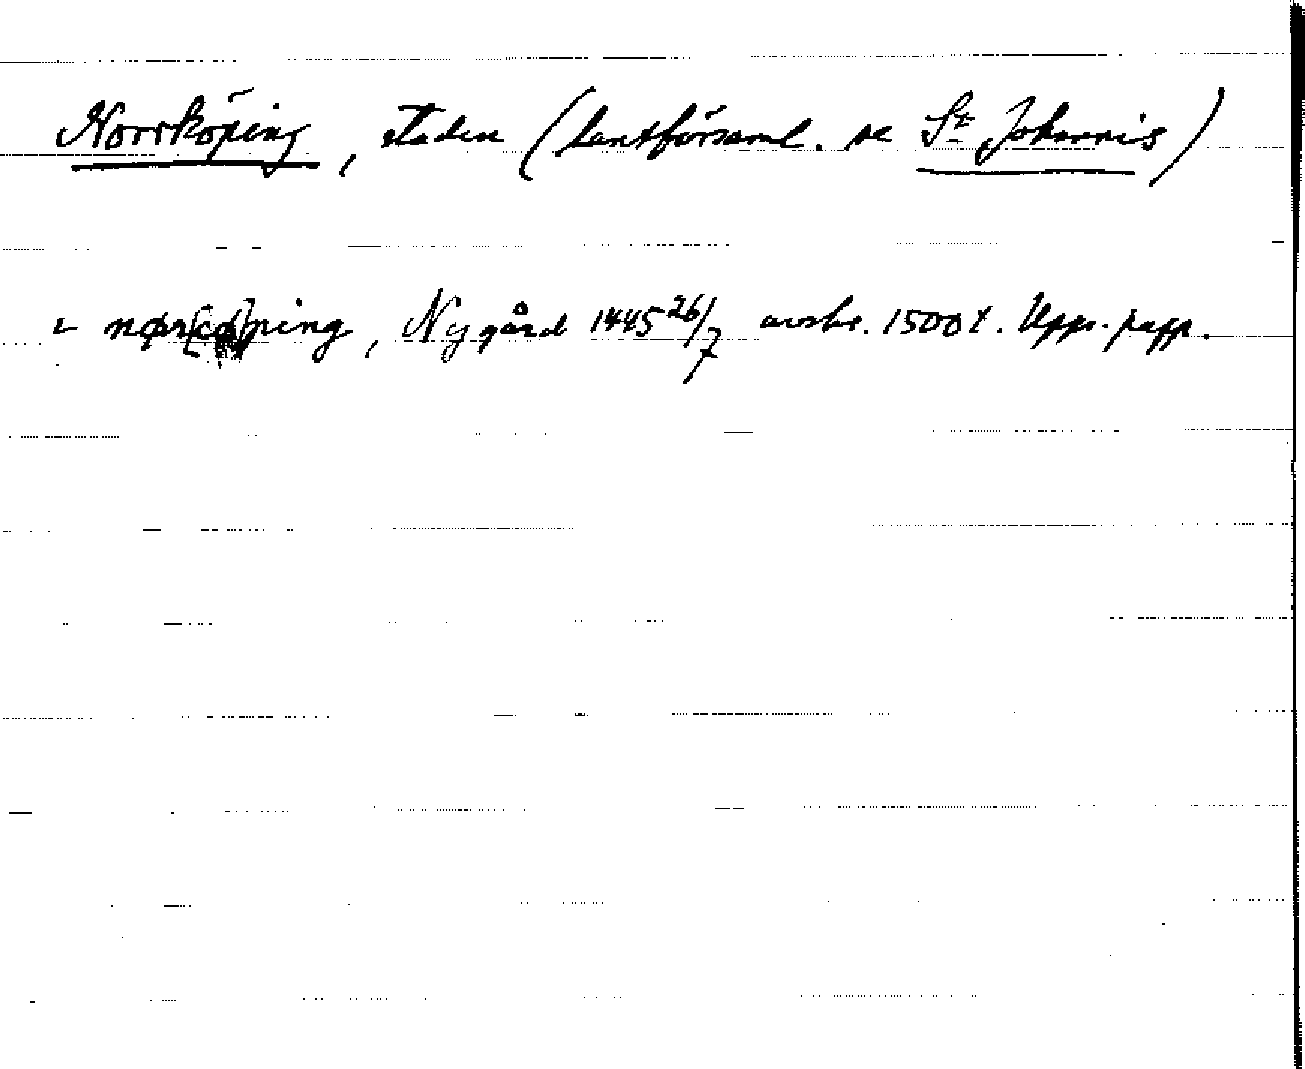 Norrköping, staden (landsförsaml. se St Johannis)
i nør[cø]ping, Nygård 1445 26/7 avskr. 1500 t. Upps. papp.